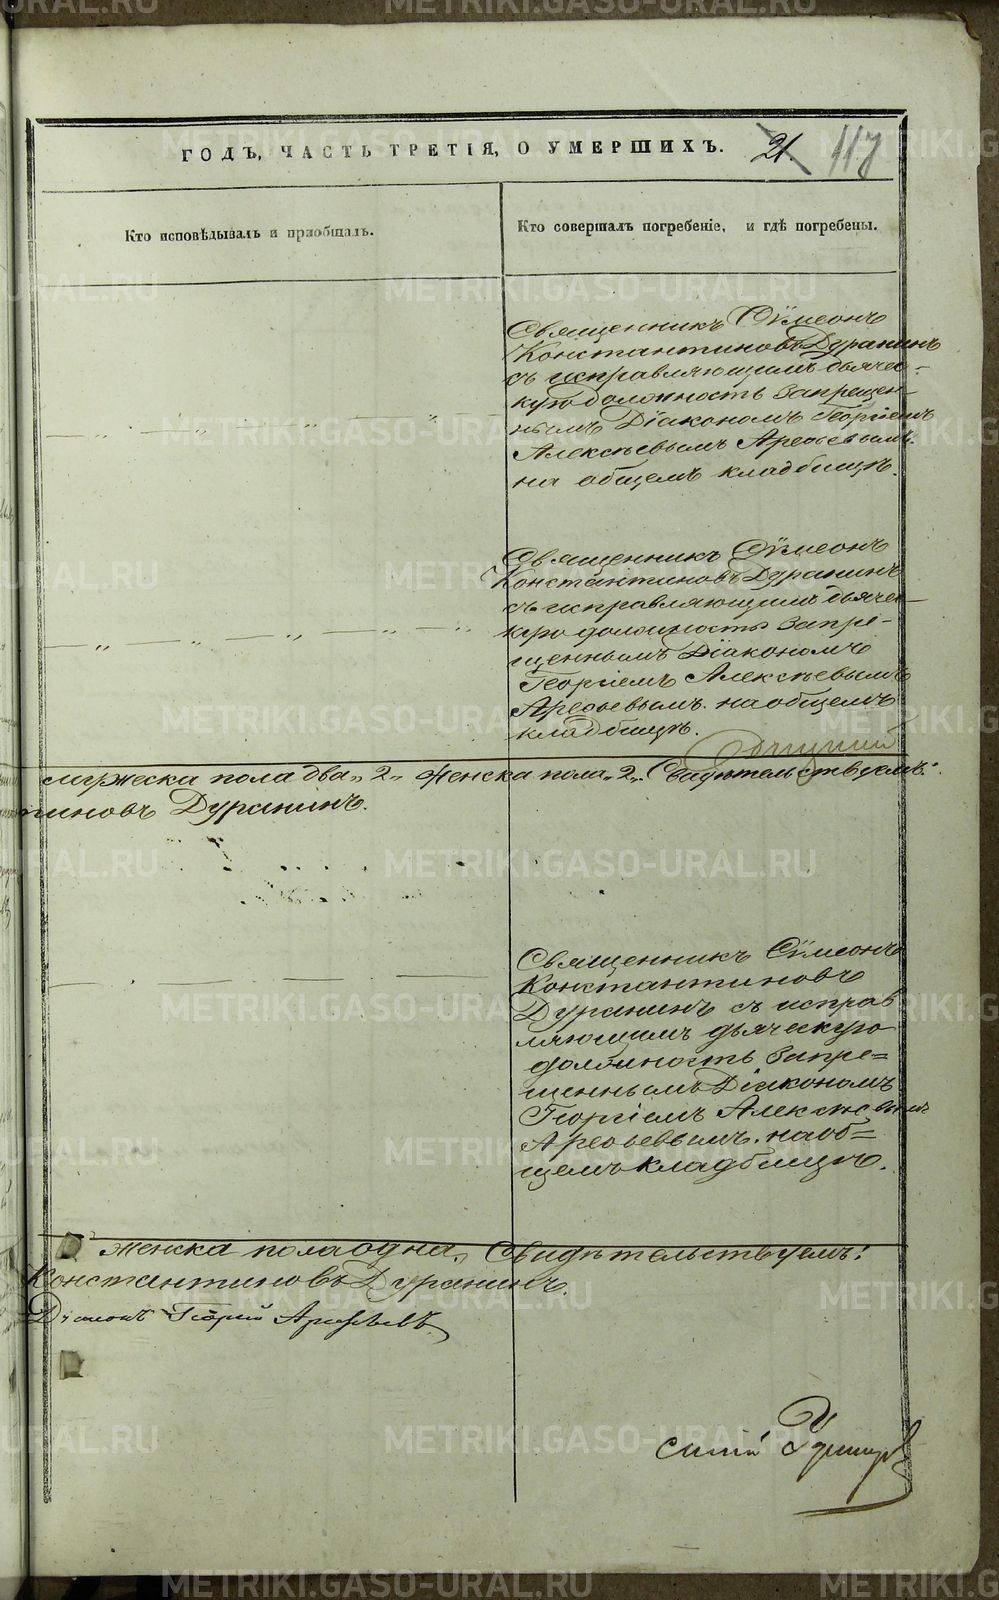 ГОДЪ, ЧАСТЬ ТРЕТІЯ, О УМЕРШИХЪ. 21. 117
Кто исповѣдывалъ и пріобщалъ.
Кто совершалъ погребеніе, и гдѣ погребены.
Священникъ Сѵмеонъ
Константиновъ Дуранинъ
съ исправляющимъ дьячес-
кую должность запрещен-
нымъ Діакономъ Георгіемъ
Алексѣевымъ Арефьевымъ.
на общемъ кладбищѣ.
Священникъ Сѵмеонъ
Константиновъ Дуранинъ
съ исправляющимъ дьячес-
кую должность запре-
щеннымъ Діакономъ
Георгіемъ Алексѣевымъ
Арефьевымъ. на общемъ
кладбищѣ.
мужеска пола два „2„ женска пола „2„ Свидѣтельствуемъ:
тиновъ Дуранинъ.
Священникъ Сѵмеонъ
Константиновъ
Дуранинъ съ исправ
ляющимъ дьяческую
должность запре=
щеннымъ Діакономъ
Георгіемъ Алексѣевымъ
Арефьевымъ. на об=
щемъ кладбищѣ.
женска пола одна, Свидѣтельствуемъ:
Константиновъ Дуранинъ.
Діаконъ Георгій Арефьевъ
METRIKI.GASO-URAL.RU